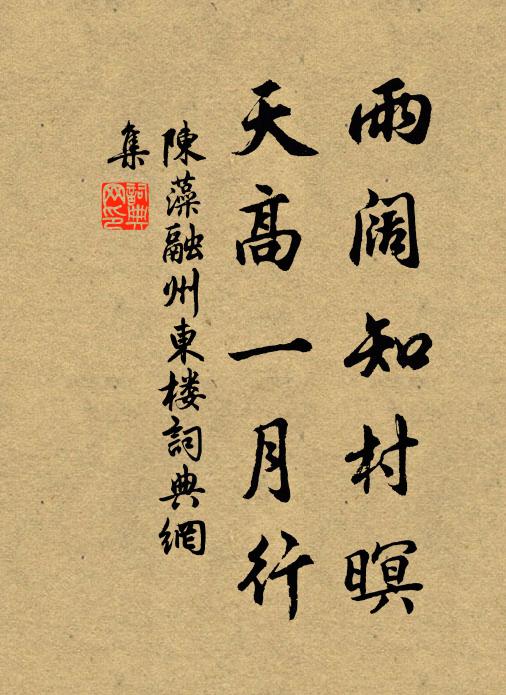 雨阔知村暝
天高一月行
陳藻融州東楼詞典網
集
詞典网印